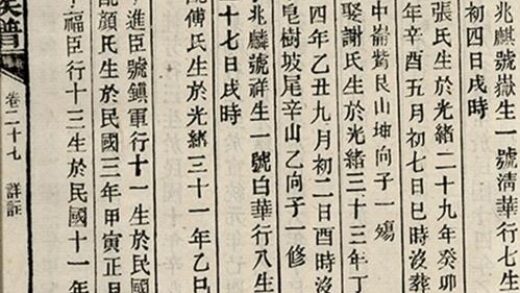 兆麒號嶽生一號清華行七生
初四日戌時
張氏生於光緒二十九年癸卯
年辛酉五月初七日巳時沒葬
中崙嘴艮山坤向子一殤
娶謝氏生於光緒三十三年丁
四年乙丑九月初二日酉時沒
皂樹坡尾辛山乙向子一修
兆麟號祥生一號白華行八生
十七日戌時
配傅氏生於光緒三十一年乙巳
進臣號鎮軍行十一生於民國
配顏氏生於民國三年甲寅正月
福臣行十三生於民國十一年
族譜
卷二十七 詳註